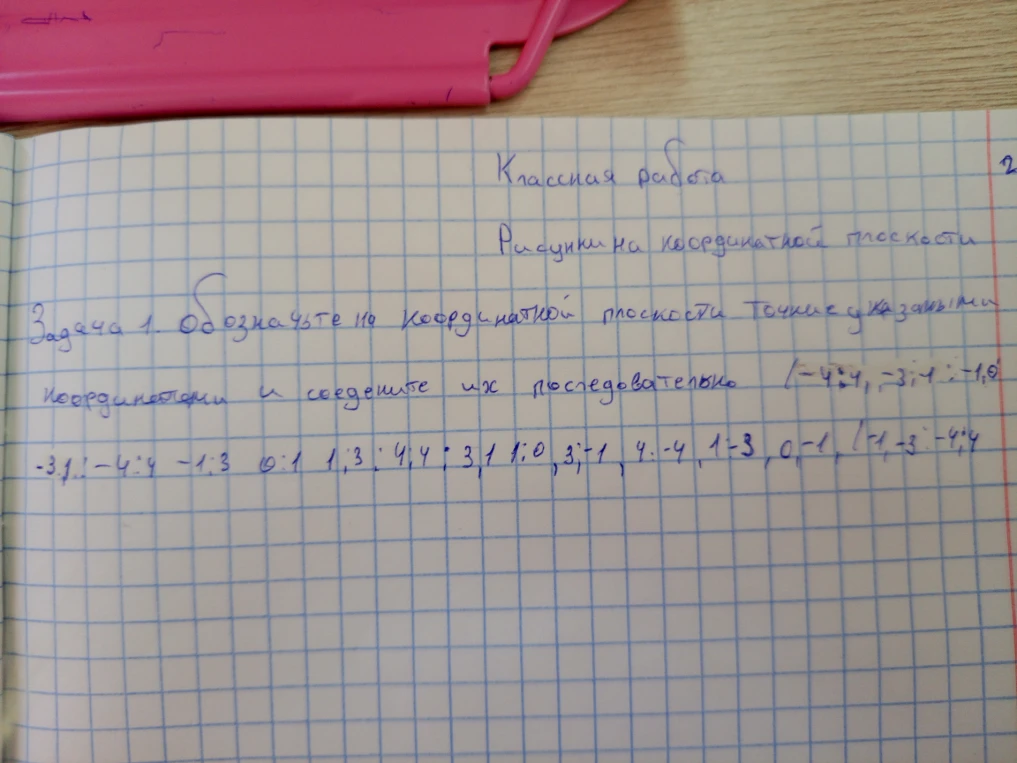 Классная работа
2
Рисунки на координатной плоскости
Задача 1. Обозначьте на координатной плоскости точки с указаными
координатами и соедените их последовательно (-4;4, -3;-1 ; -1,0
-3,1; -4;4 -1;3 0;1 1;3; 4;4; 3,1 1;0, 3;-1, 4;-4, 1-3, 0,-1, (-1,-3; -4;4